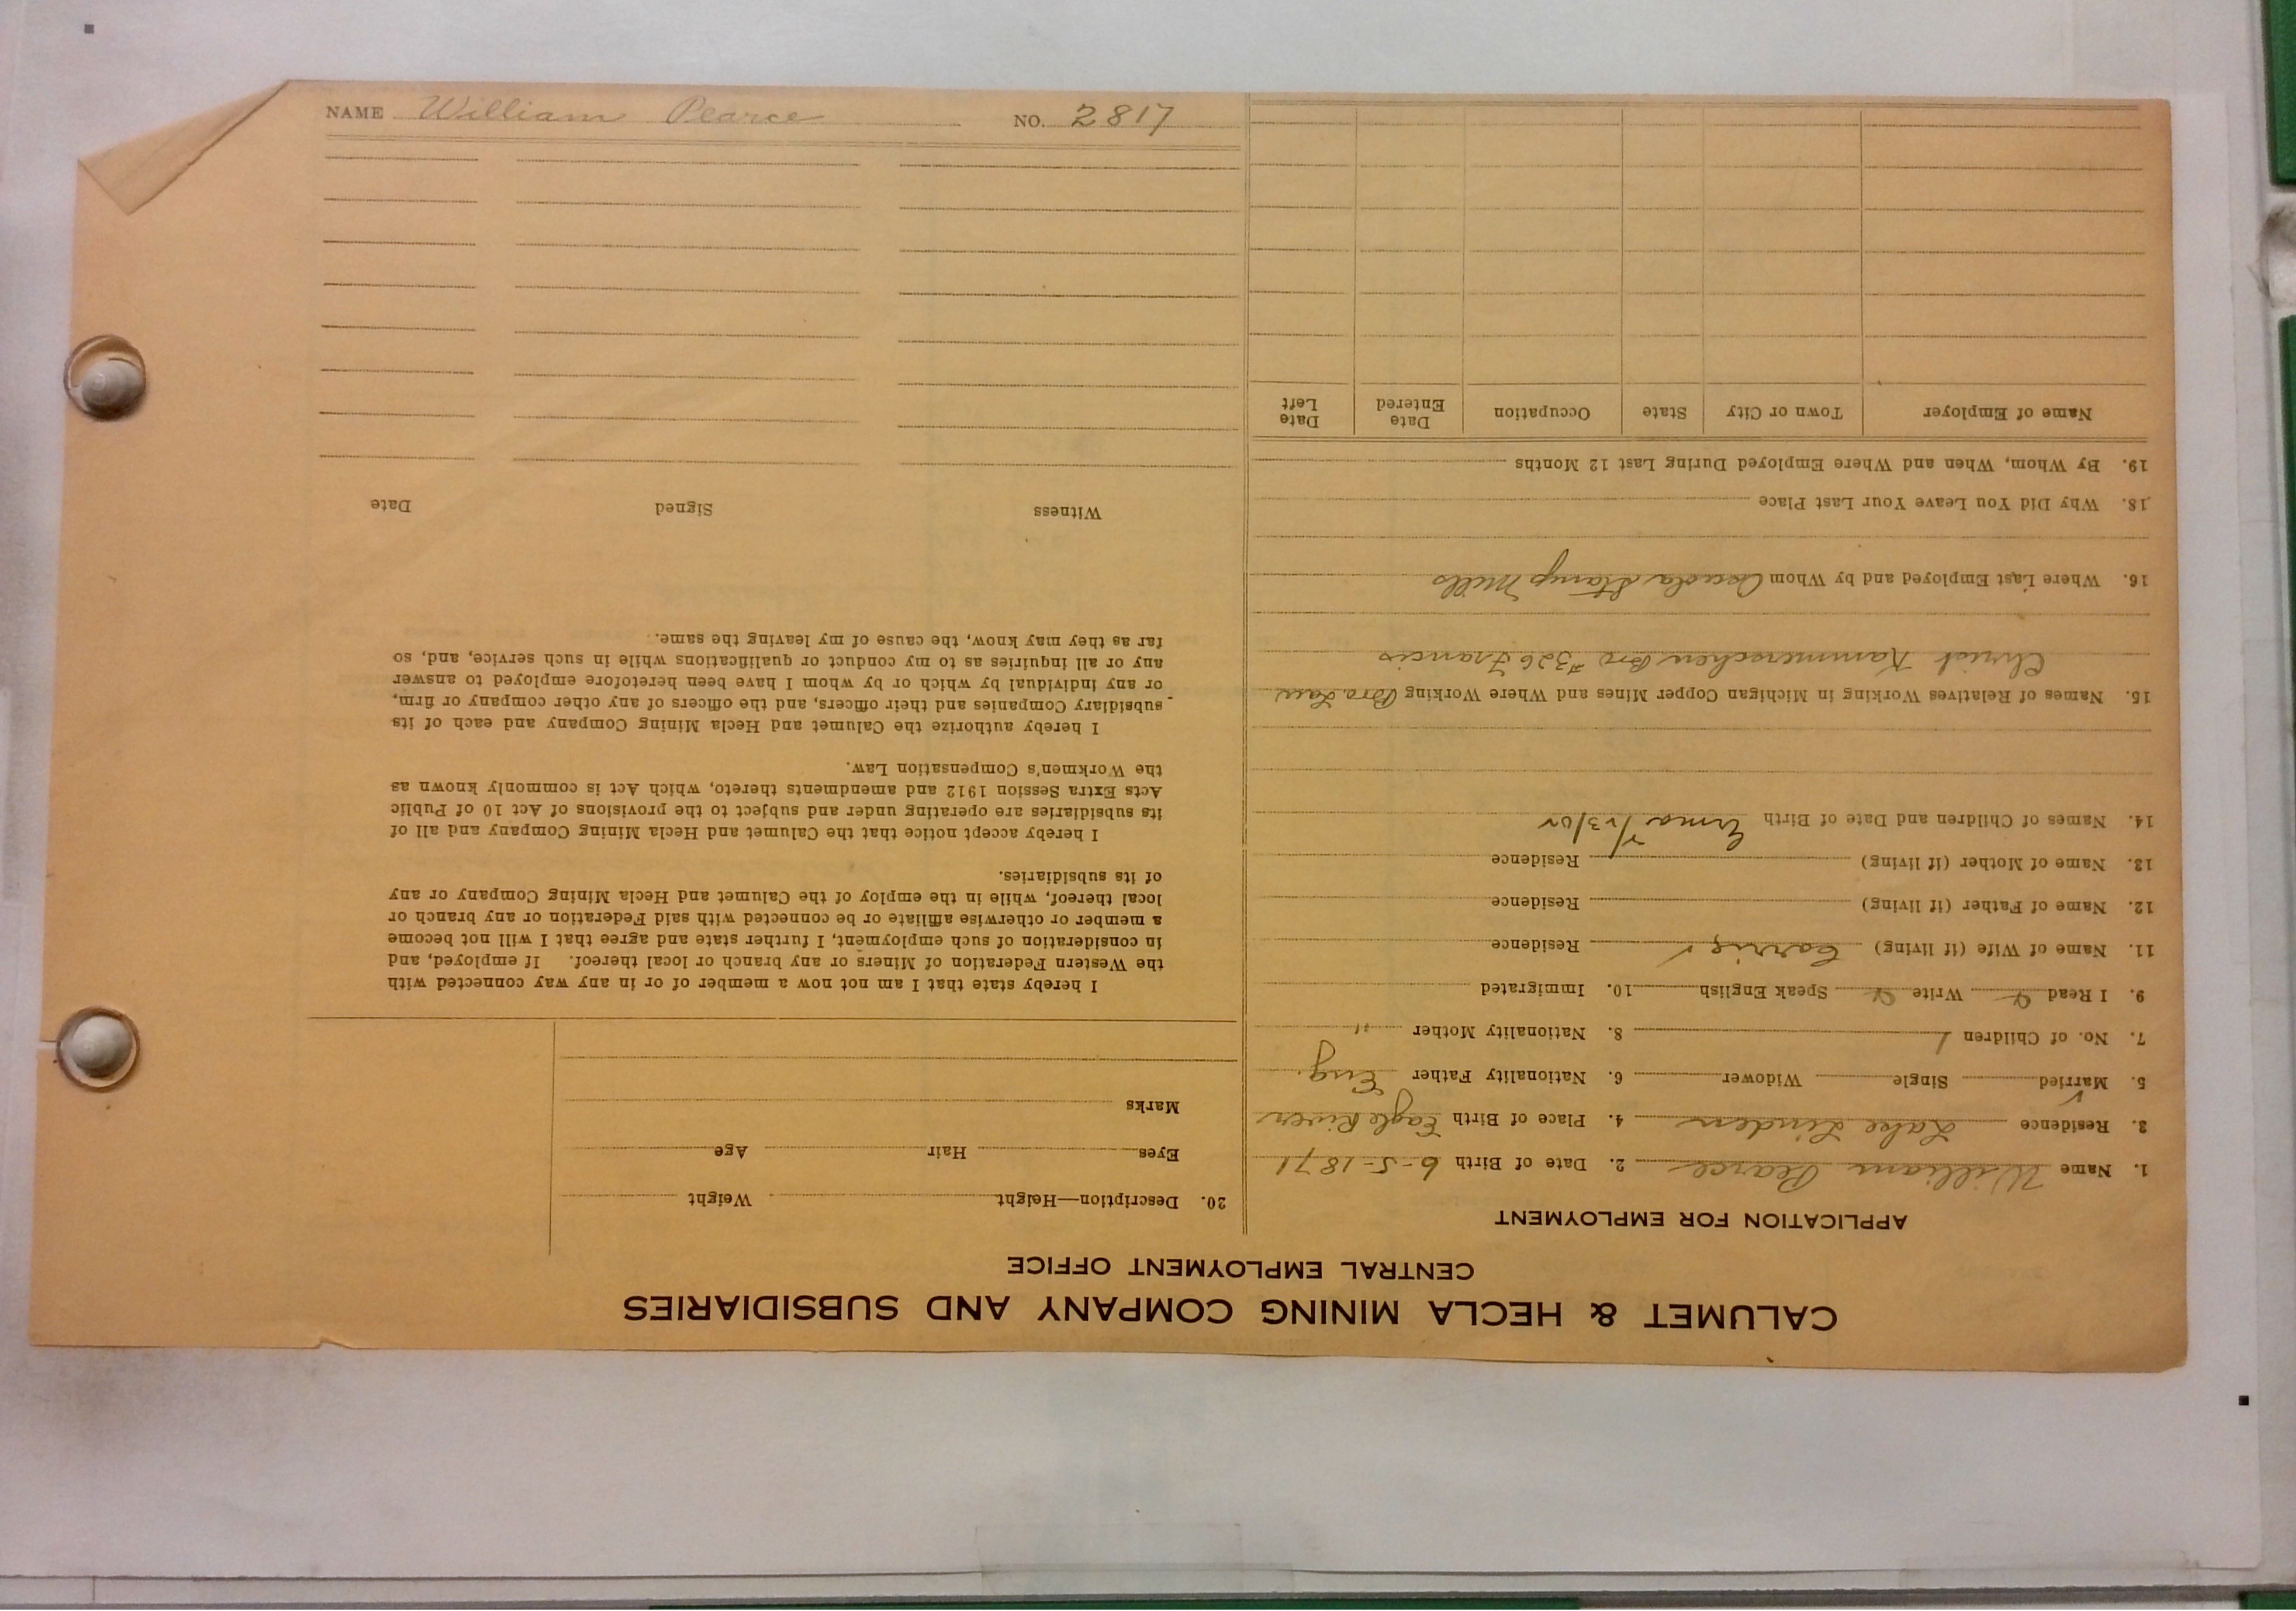 CALUMET & HECLA MINING COMPANY AND SUBSIDIARIES
CENTRAL EMPLOYMENT OFFICE
APPLICATION FOR EMPLOYMENT
1. Name William Pearce 2. Date of Birth 6-5-1871
3. Residence Lake Linden 4. Place of Birth Eagle River
5. Married ✓ Single Widower 6. Nationality Father Eng.
7. No. of Children 1 8. Nationality Mother "
9. I Read Write Speak English 10. Immigrated
11. Name of Wife (if living) Carrie ✓ Residence
12. Name of Father (if living) Residence
13. Name of Mother (if living) Residence
14. Names of Children and Date of Birth Erma
15. Names of Relatives Working in Michigan Copper Mines and Where Working Bro Law
Christ Kammerschen Bro #326 Francis
16. Where Last Employed and by Whom Osceola Stamp Mills
18. Why Did You Leave Your Last Place
19. By Whom, When and Where Employed During Last 12 Months
Name of Employer Town or City State Occupation Date Entered Date Left
20. Description—Height Weight
Eyes Hair Age
Marks
I hereby state that I am not now a member of or in any way connected with
the Western Federation of Miners or any branch or local thereof. If employed, and
in consideration of such employment, I further state and agree that I will not become
a member or otherwise affiliate or be connected with said Federation or any branch or
local thereof, while in the employ of the Calumet and Hecla Mining Company or any
of its subsidiaries.
I hereby accept notice that the Calumet and Hecla Mining Company and all of
its subsidiaries are operating under and subject to the provisions of Act 10 of Public
Acts Extra Session 1912 and amendments thereto, which Act is commonly known as
the Workmen's Compensation Law.
I hereby authorize the Calumet and Hecla Mining Company and each of its
subsidiary Companies and their officers, and the officers of any other company or firm,
or any individual by which or by whom I have been heretofore employed to answer
any or all inquiries as to my conduct or qualifications while in such service, and, so
far as they may know, the cause of my leaving the same.
Witness Signed Date
NAME William Pearce NO. 2817